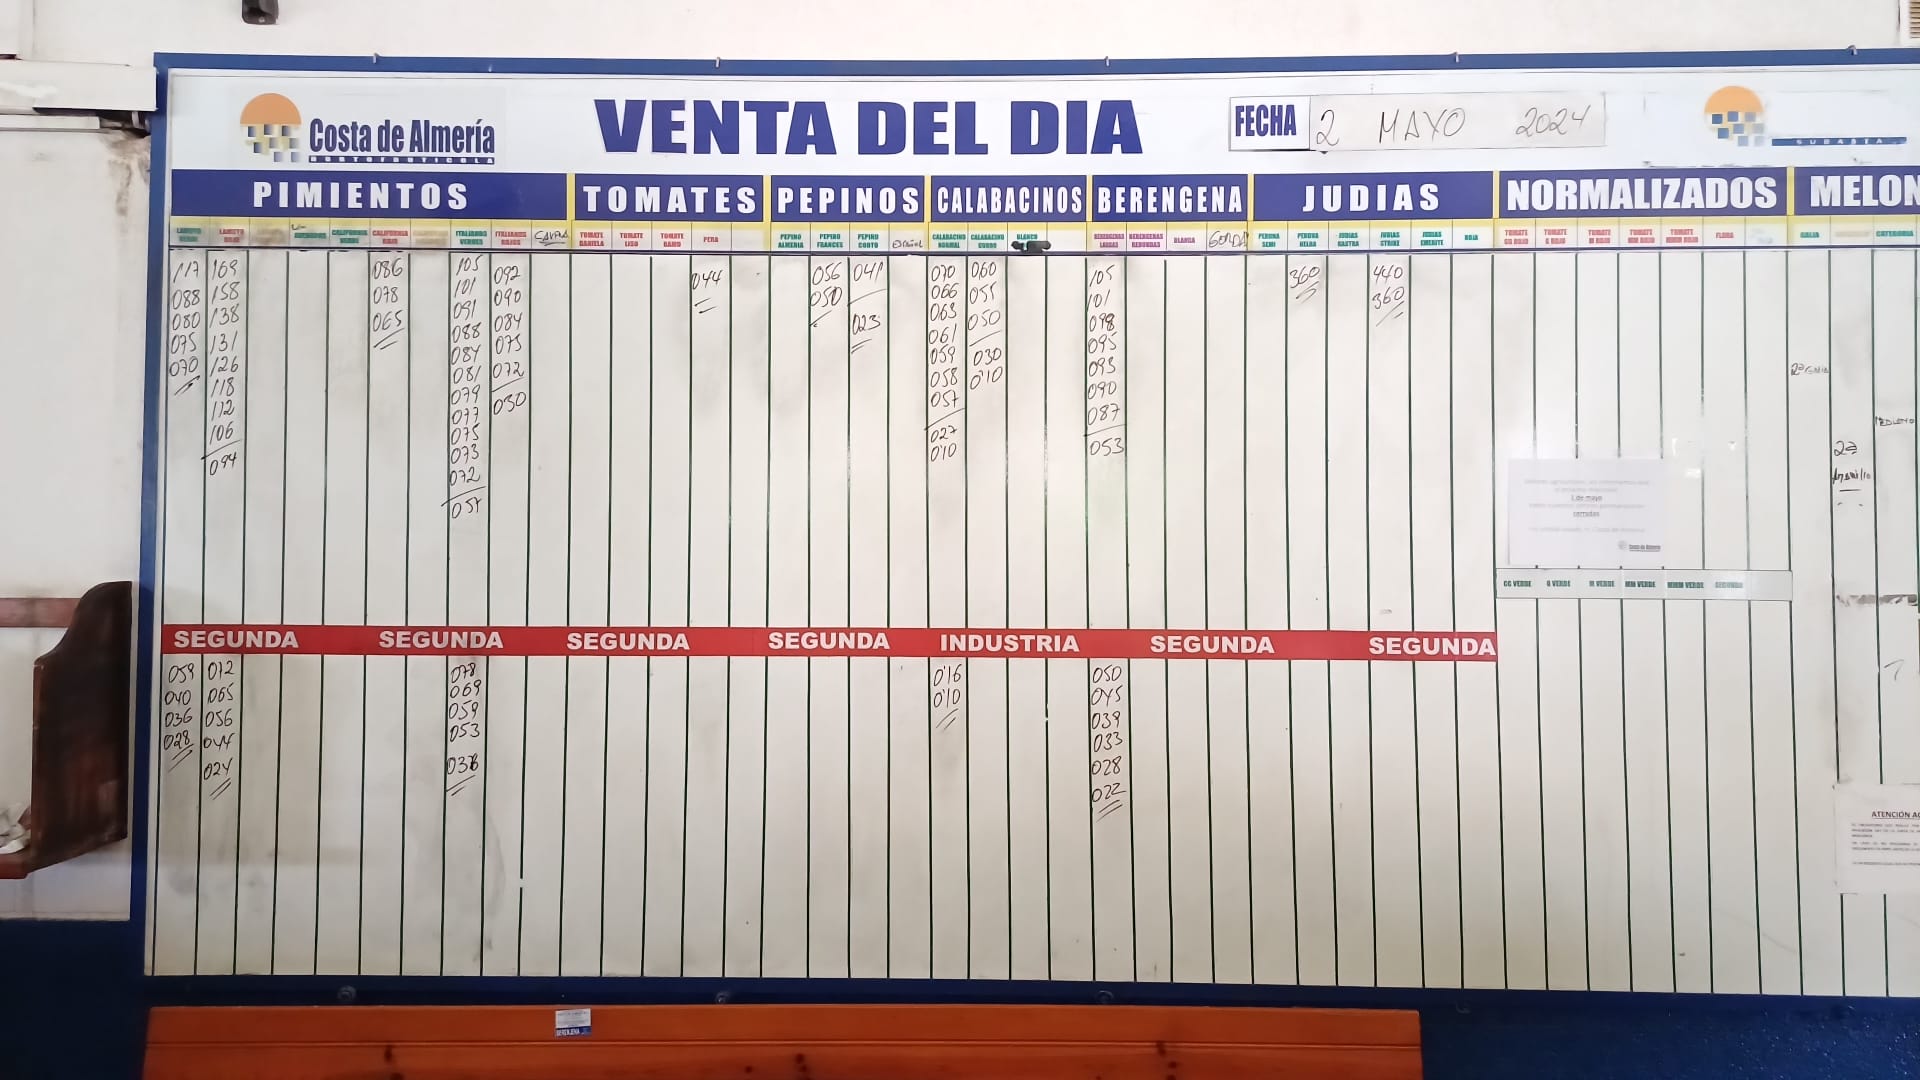 Costa de Almería
HORTOFRUTICOLA
VENTA DEL DIA
FECHA 2 MAYO 2024
SUBASTA
PIMIENTOS TOMATES PEPINOS CALABACINOS BERENGENA JUDIAS NORMALIZADOS MELON
LAMUYO VERDE
LAMUYO ROJO
CALIFORNIA VERDE
CALIFORNIA ROJO
ITALIANOS VERDES
ITALIANOS ROJOS
TOMATE DANIELA
TOMATE LISO
TOMATE RAMO
PERA
PEPINO ALMERIA
PEPINO FRANCES
PEPINO CORTO
Español
CALABACINO NORMAL
CALABACINO GORDO
BLANCO
BERENGENAS LARGAS
BERENGENAS REDONDAS
BLANCA
GORDA
PERONA SEMI
PERONA HELDA
JUDIAS RASTRA
JUDIAS STRIKE
JUDIAS EMERITE
ROJA
TOMATE GG ROJO
TOMATE G ROJO
TOMATE M ROJO
TOMATE MM ROJO
TOMATE MMM ROJO
FLORA
GALIA
CATEGORIA
117
088
080
075
070
169
158
138
131
126
118
112
106
094
086
078
065
105
101
091
088
084
081
079
077
075
073
072
057
092
090
084
075
072
030
044
056
050
041
023
070
066
063
061
059
058
057
027
0'10
060
055
050
030
0'10
105
101
098
095
093
090
087
053
360
440
360
2ª Galia
2ª
Amarillo
1 de mayo
cerradas
Costa de Almería
GG VERDE G VERDE M VERDE MM VERDE MMM VERDE SEGUNDA
SEGUNDA SEGUNDA SEGUNDA SEGUNDA INDUSTRIA SEGUNDA SEGUNDA
059
040
036
028
072
065
056
044
024
078
069
059
053
0'16
0'10
050
045
039
033
028
022
ATENCIÓN
BERENJENA